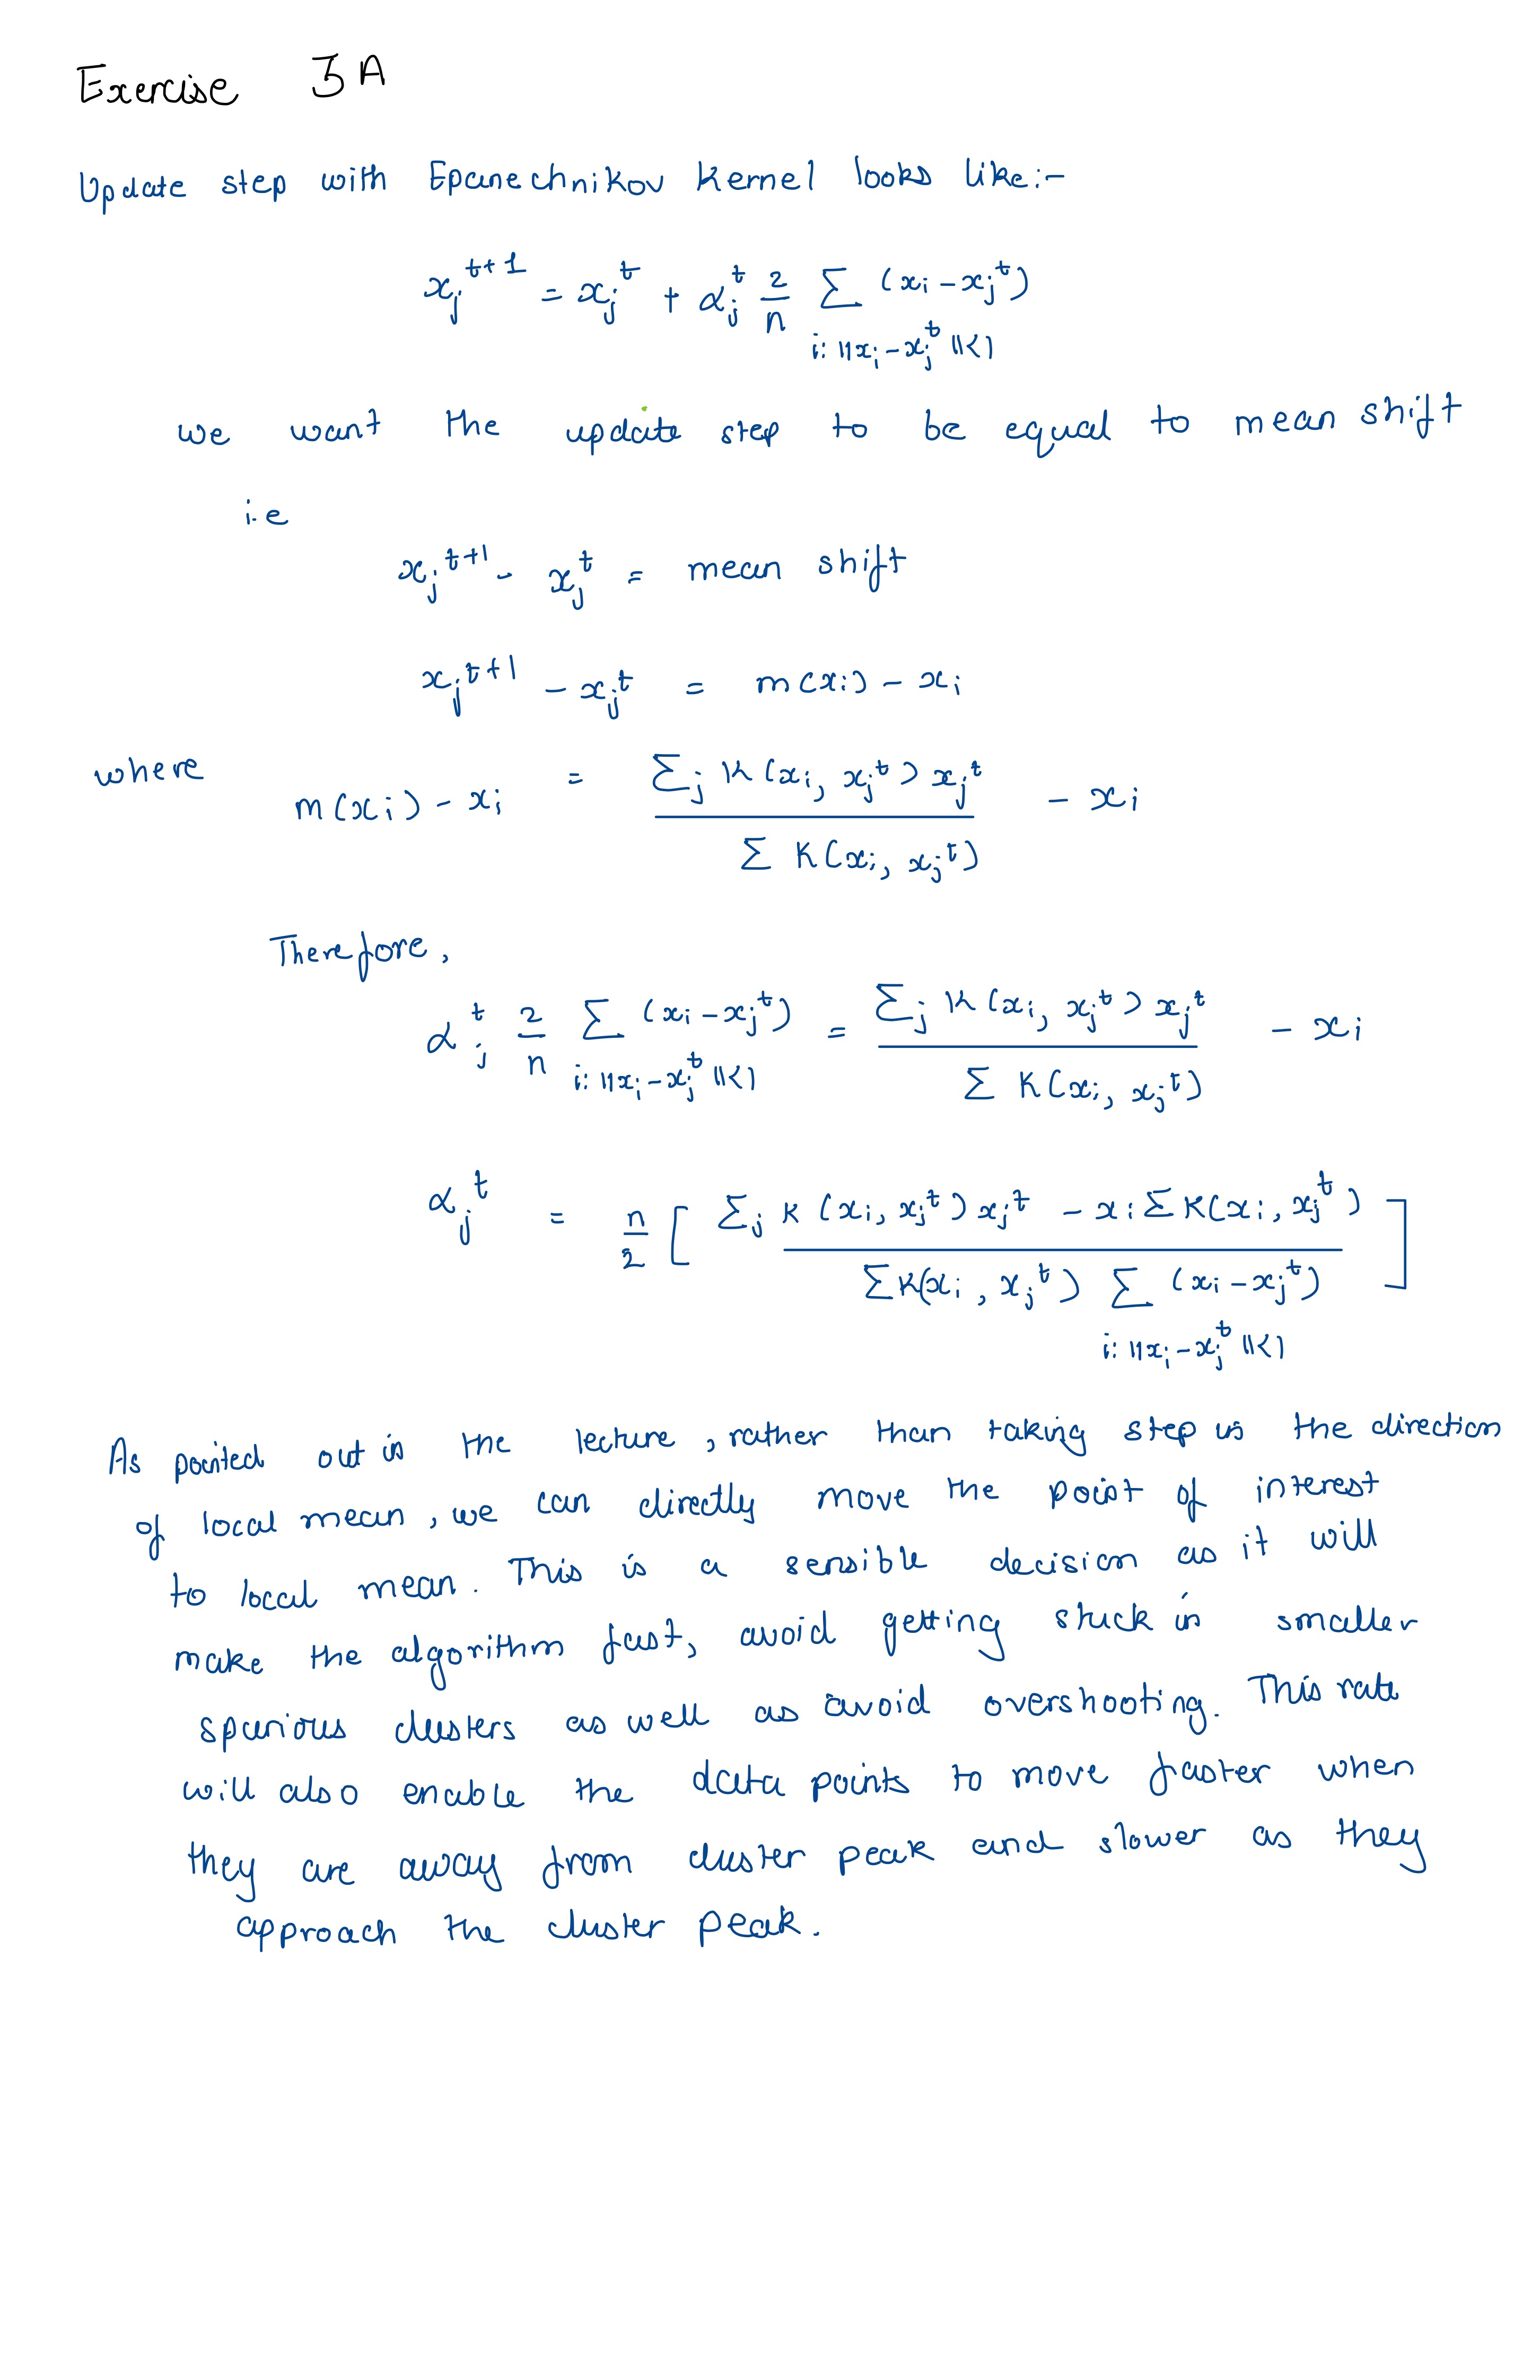 Exercise 3A
Update step with Epanechnikov Kernel looks like:-
x_j^{t+1} = x_j^t + α_j^t 2/n Σ_{i: ||x_i - x_j^t||<1} (x_i - x_j^t)
we want the update step to be equal to mean shift
i.e
x_j^{t+1} - x_j^t = mean shift
x_j^{t+1} - x_j^t = m(x_i) - x_i
where m(x_i) - x_i = Σ_j K(x_i, x_j^t) x_j^t / Σ K(x_i, x_j^t) - x_i
Therefore,
α_j^t 2/n Σ_{i: ||x_i - x_j^t||<1} (x_i - x_j^t) = Σ_j K(x_i, x_j^t) x_j^t / Σ K(x_i, x_j^t) - x_i
α_j^t = n/2 [ Σ_j K(x_i, x_j^t) x_j^t - x_i Σ K(x_i, x_j^t) / Σ K(x_i, x_j^t) Σ_{i: ||x_i - x_j^t||<1} (x_i - x_j^t) ]
As pointed out in the lecture, rather than taking step in the direction
of local mean, we can directly move the point of interest
to local mean. This is a sensible decision as it will
make the algorithm fast, avoid getting stuck in smaller
spurious clusters as well as avoid overshooting. This rate
will also enable the data points to move faster when
they are away from cluster peak and slower as they
approach the cluster peak.